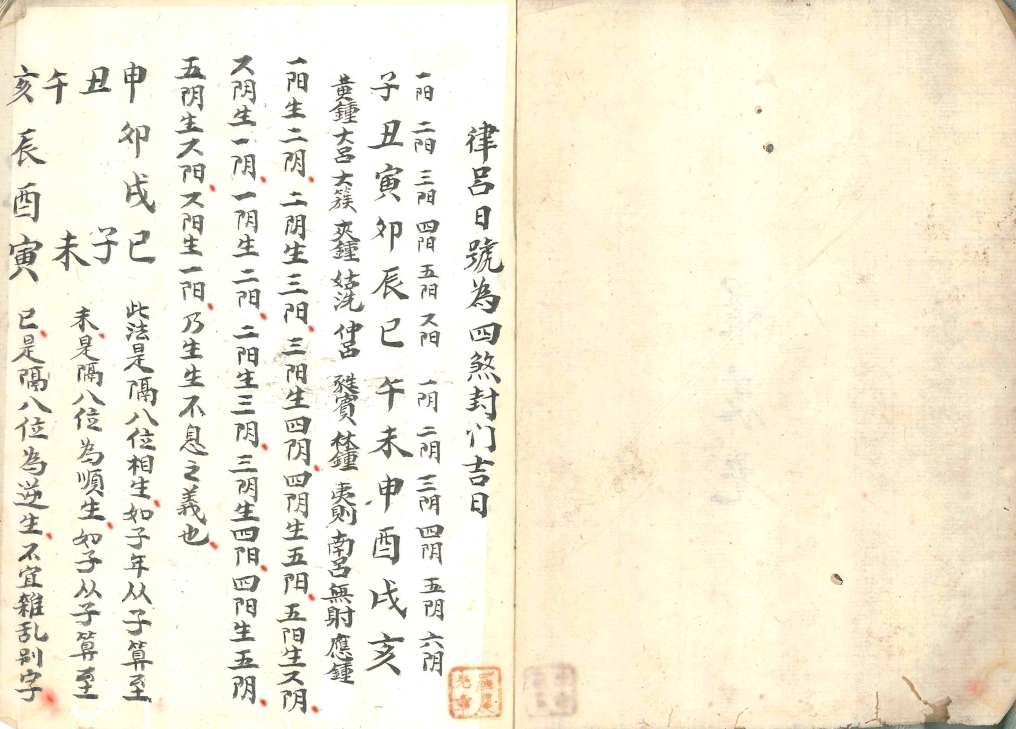 律呂日號為四煞封门吉日
一阳 二阳 三阳 四阳 五阳 六阳 一阴 二阴 三阴 四阴 五阴 六阴
子丑寅卯辰巳午未申酉戌亥
黄鐘 大呂 大簇 夾鐘 姑洗 仲呂 蕤賓 林鐘 夷則 南呂 無射 應鐘
一阳生二阴 二阴生三阳 三阳生四阴 四阴生五阳 五阳生六阴
六阴生一阴 一阴生二阳 二阳生三阴 三阴生四阳 四阳生五阴
五阴生六阳 六阳生一阳 乃生生不息之義也
申卯戌巳 此法是隔八位相生 如子年从子算至
丑 子
午 未 未是隔八位為順生 如子从子算至
亥辰酉寅 巳是隔八位為逆生 不宜雜乱别字